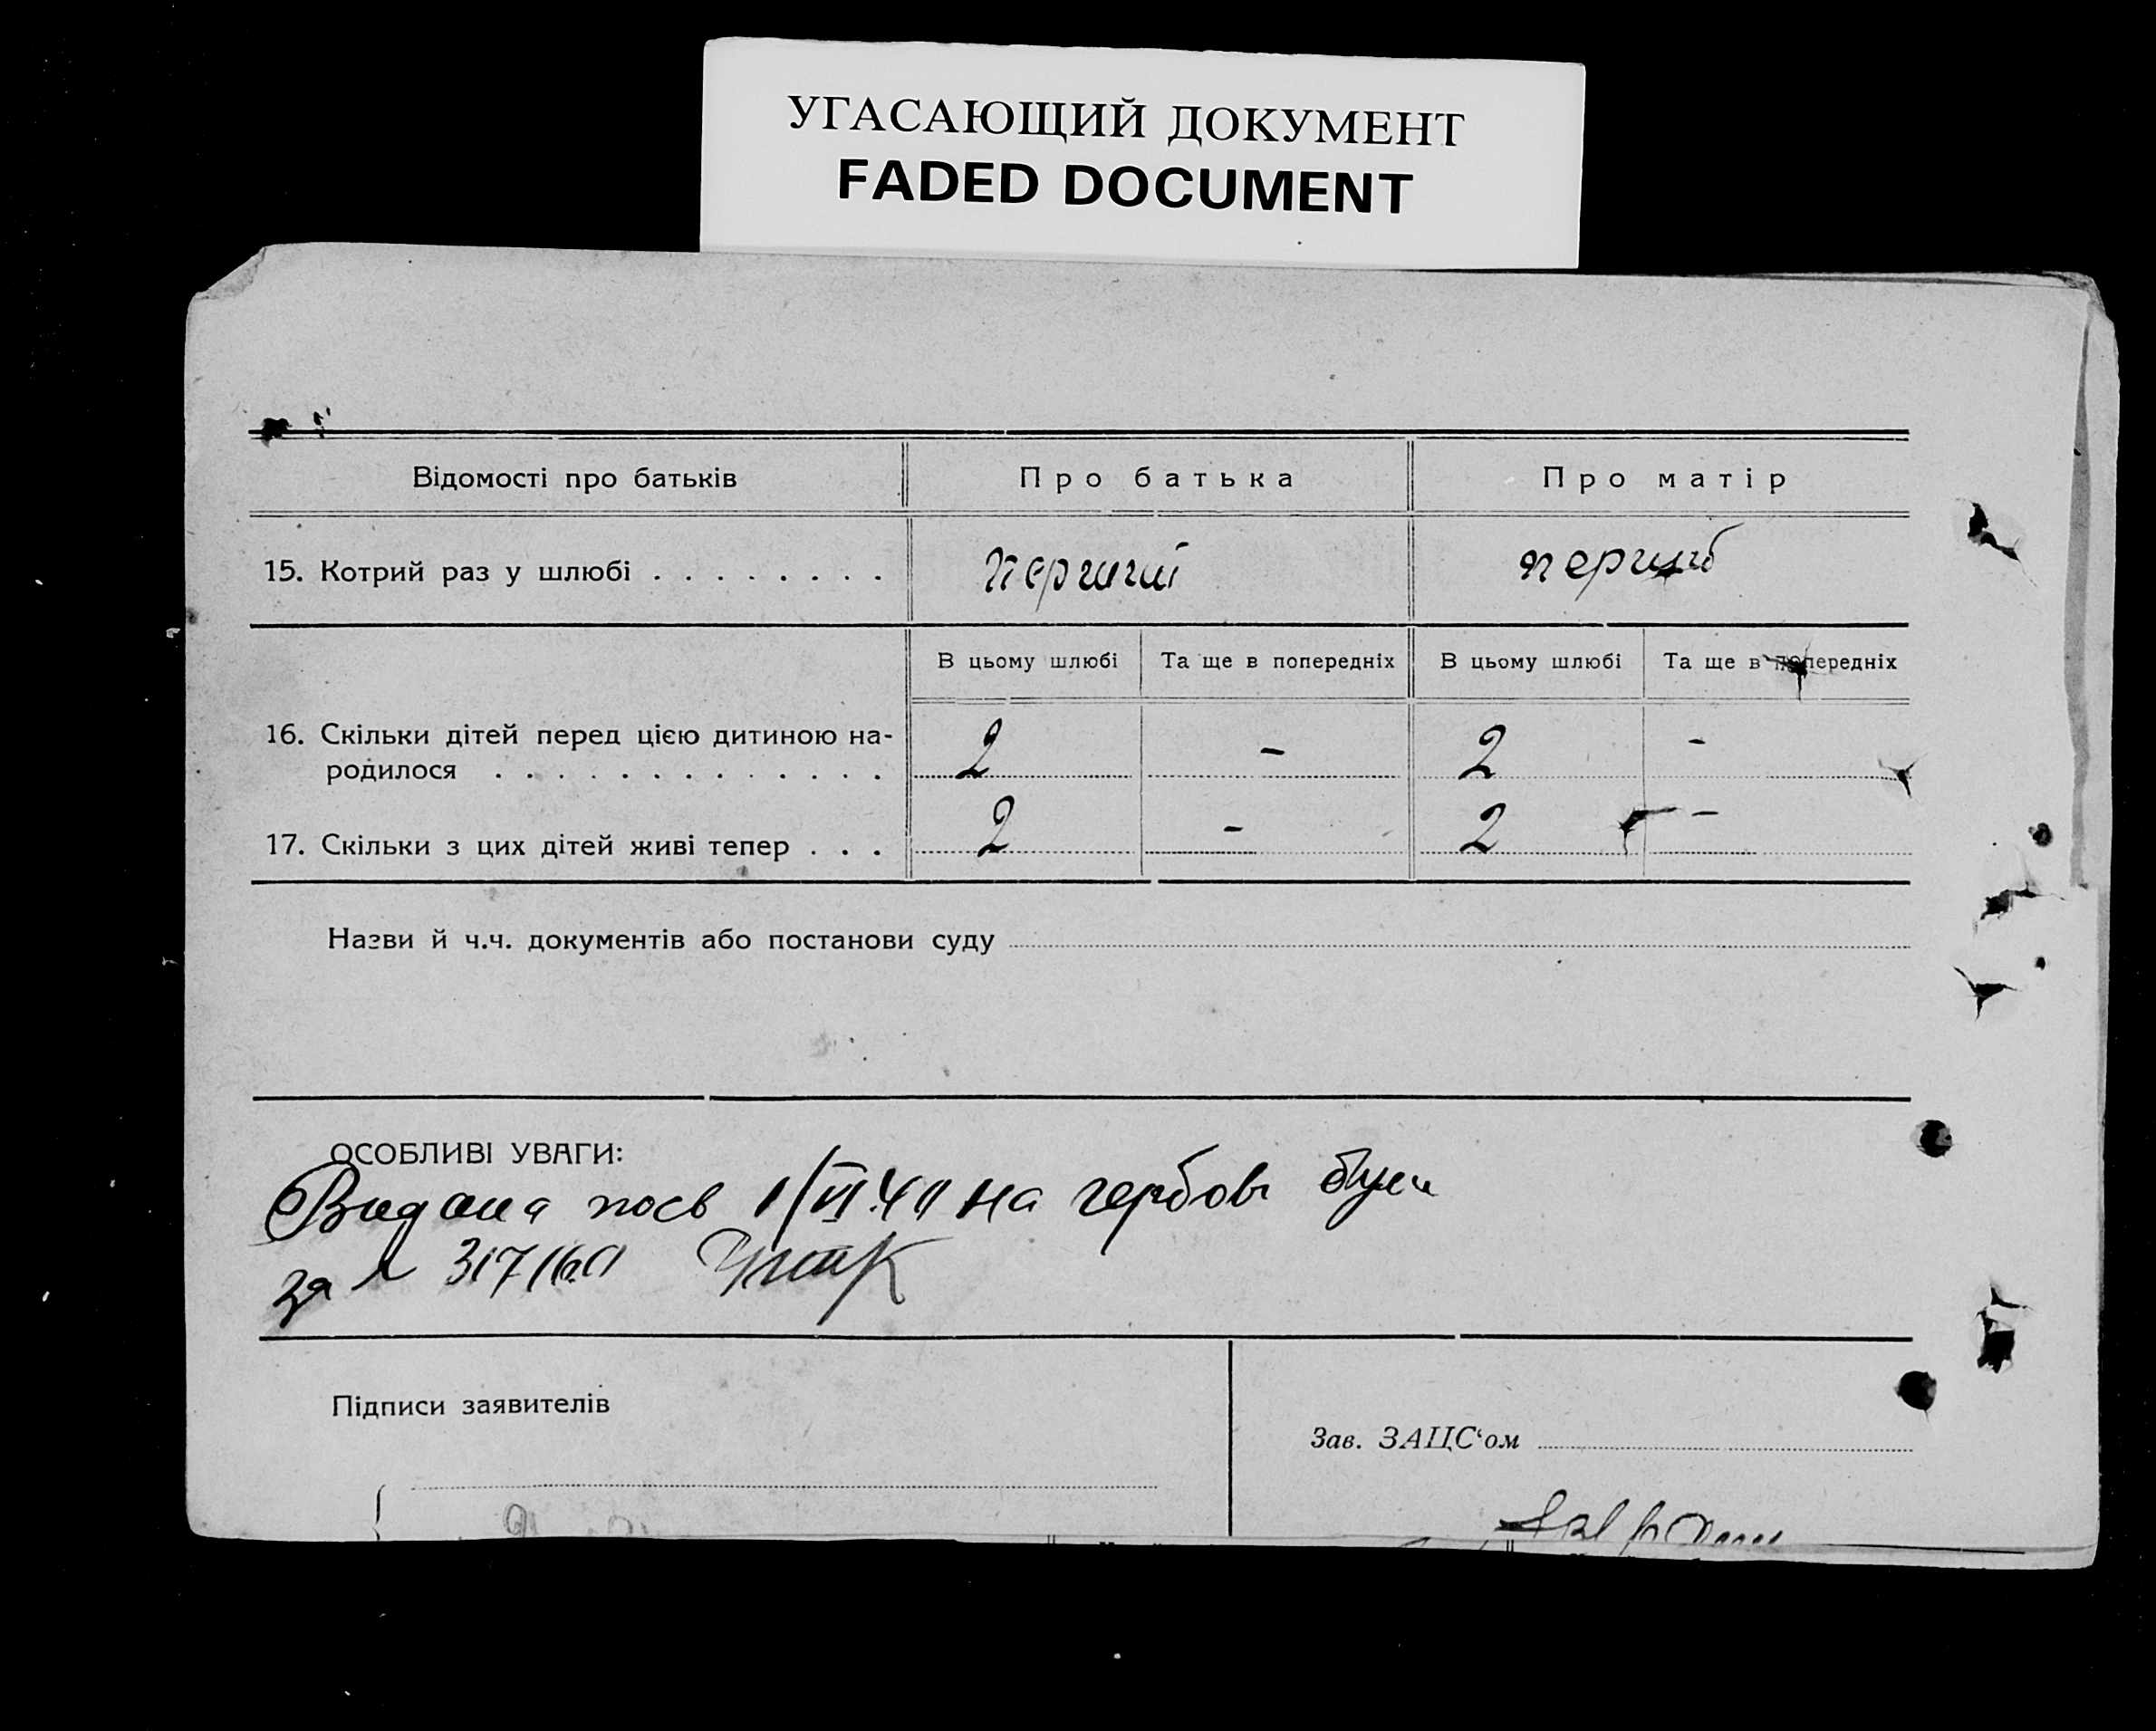 УГАСАЮЩИЙ ДОКУМЕНТ
FADED DOCUMENT
Відомості про батьків Про батька Про матір
15. Котрий раз у шлюбі . . . . . . . . перший перший
В цьому шлюбі Та ще в попередніх В цьому шлюбі Та ще в попередніх
16. Скільки дітей перед цією дитиною на-
родилося . . . . . . . . . . . . . 2 - 2 -
17. Скільки з цих дітей живі тепер . . . 2 - 2 -
Назви й ч.ч. документів або постанови суду
ОСОБЛИВІ УВАГИ:
Видана посв на гербов
за
Підписи заявителів
Зав. ЗАЦС‘ом